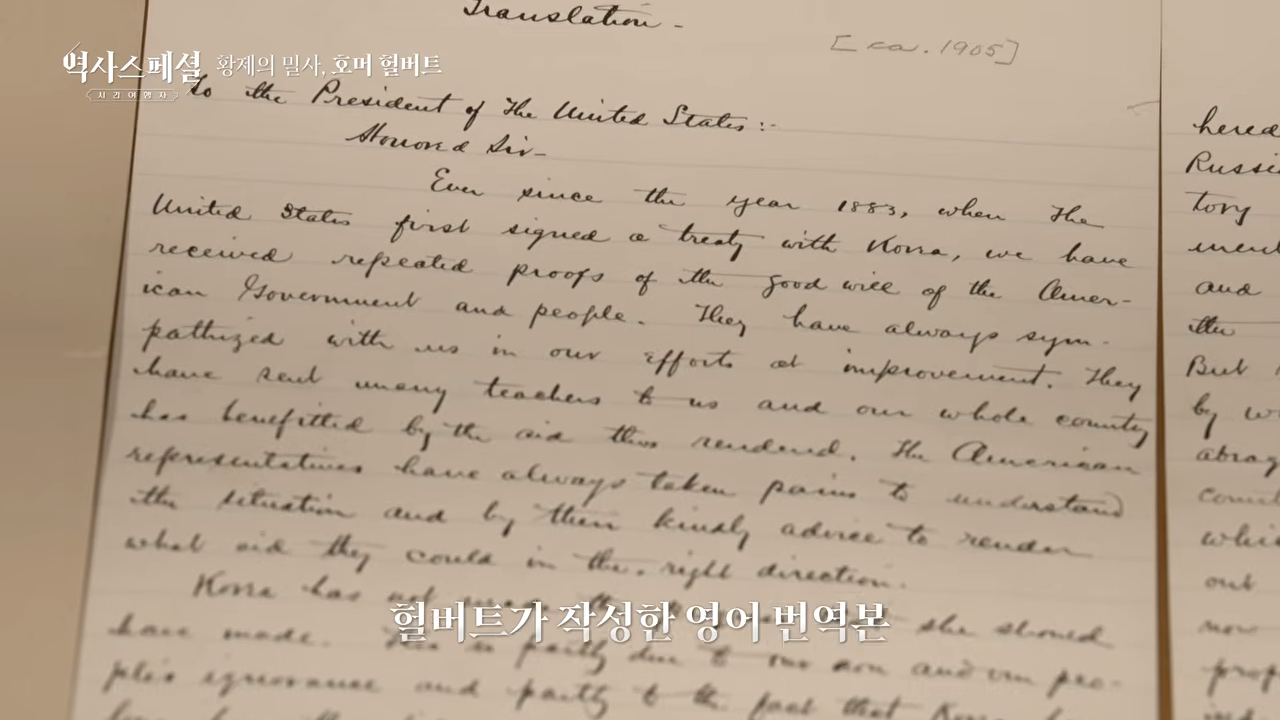 Translation -
[ca. 1905]
역사스페셜 황제의 밀사, 호머 헐버트
시리어행자
To the President of the United States:-
Honored Sir-
Ever since the year 1883, when the
United States first signed a treaty with Korea, we have
received repeated proofs of the good will of the Amer-
ican Government and people. They have always sym-
pathized with us in our efforts at improvement. They
have sent many teachers to us and our whole country
has benefitted by the aid thus rendered. The American
representatives have always taken pains to understand
the situation and by their kindly advice to render
what aid they could in the right direction.
Korea has not made the she should
have made. This is partly due to our own and our peo-
ple's ignorance and partly to the fact that Korea
헐버트가 작성한 영어 번역본
hered
Russi
tory
ment
and
the
But
by w
abrog
count
whi
out
now
prop